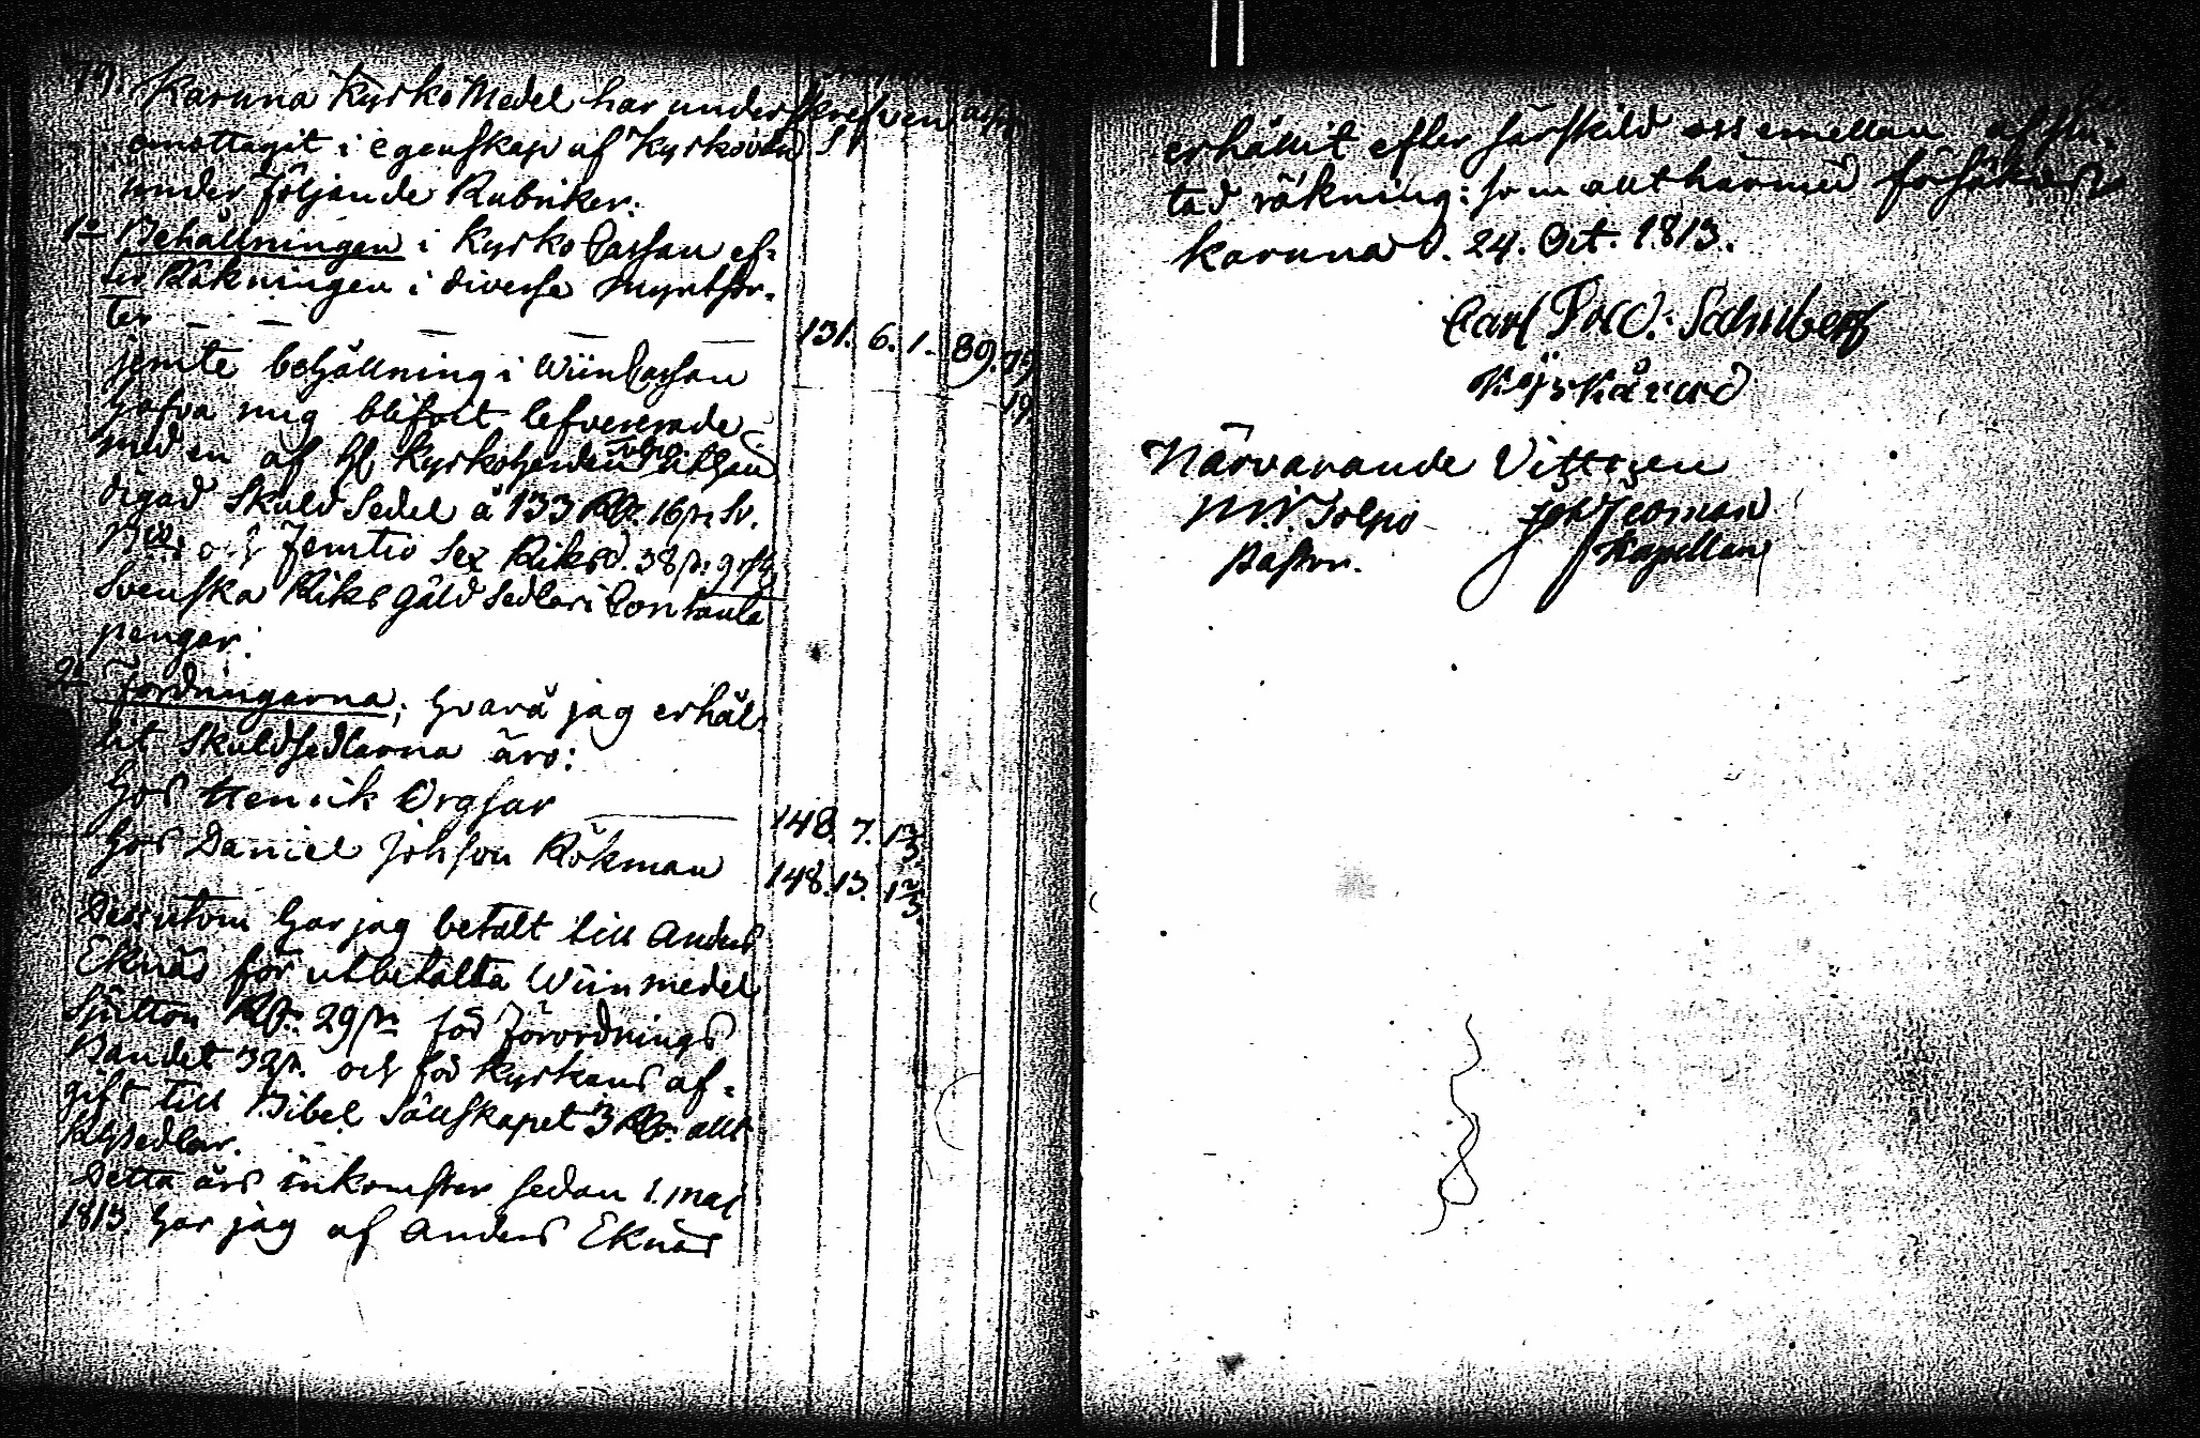 Karuna Kyrko Medel har underskrefven
emottagit i egenskap af Kyrkovärd
under följande Rubriker:
1o Behållningen i Kyrko Cassan ef-
ter Räkningen i diverse myntsor-
ter — — — — 131. 6. 1. 89. 79
jemte behållning i Wiin Cassan — 19.
hafva mig blifvit lefvererade
med en af H Kyrkoherden Tolpo
digad Skuld Sedel à 133 Rd. 16 s. Sv.
Bco. och Femtio Sex Riksd. 38 s. 9 rst
Svenska Riks gäld sedlar i Contanta
pengar.
2o Fordringarna; hvarå jag erhål-
lit Skuldsedlarna äro:
hos Henrik Orgsar — 148. 7. 1 2/3.
hos Daniel Johsson Rökman 148. 13. 1 2/3.
Dessutom har jag betalt till Anders
Eknäs för utbetalta Wiin medel
Sjutton Rd. 29 s. för Förordnings
Bandet 32 s. och för Kyrkans af-
gift till Bibel Sällskapet 3 Rd. allt
RGSedlar.
Detta års inkomster sedan 1. maj
1813. har jag af Anders Eknäs
erhållit efter särskild oss emellan afslu-
tad räkning: som allt härmed försäkras
Karuna d. 24. Oct. 1813.
Carl Fred. Sahlberg
Kyrkåvärd
Närvarande Vittnen
M. N. Tolpo
Joh Tecman
Pastor.
Kapellan